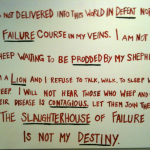 NOT DELIVERED INTO THIS WORLD IN DEFEAT NOR
FAILURE COURSE IN MY VEINS. I AM NOT
SHEEP WAITING TO BE PRODDED BY MY SHEPH
M A LION AND I REFUSE TO TALK, WALK, TO SLEEP W
EEP. I WILL NOT HEAR THOSE WHO WEEP AND
EIR DISEASE IS CONTAGIOUS. LET THEM JOIN THE
THE SLAUGHTERHOUSE OF FAILURE
IS NOT MY DESTINY.